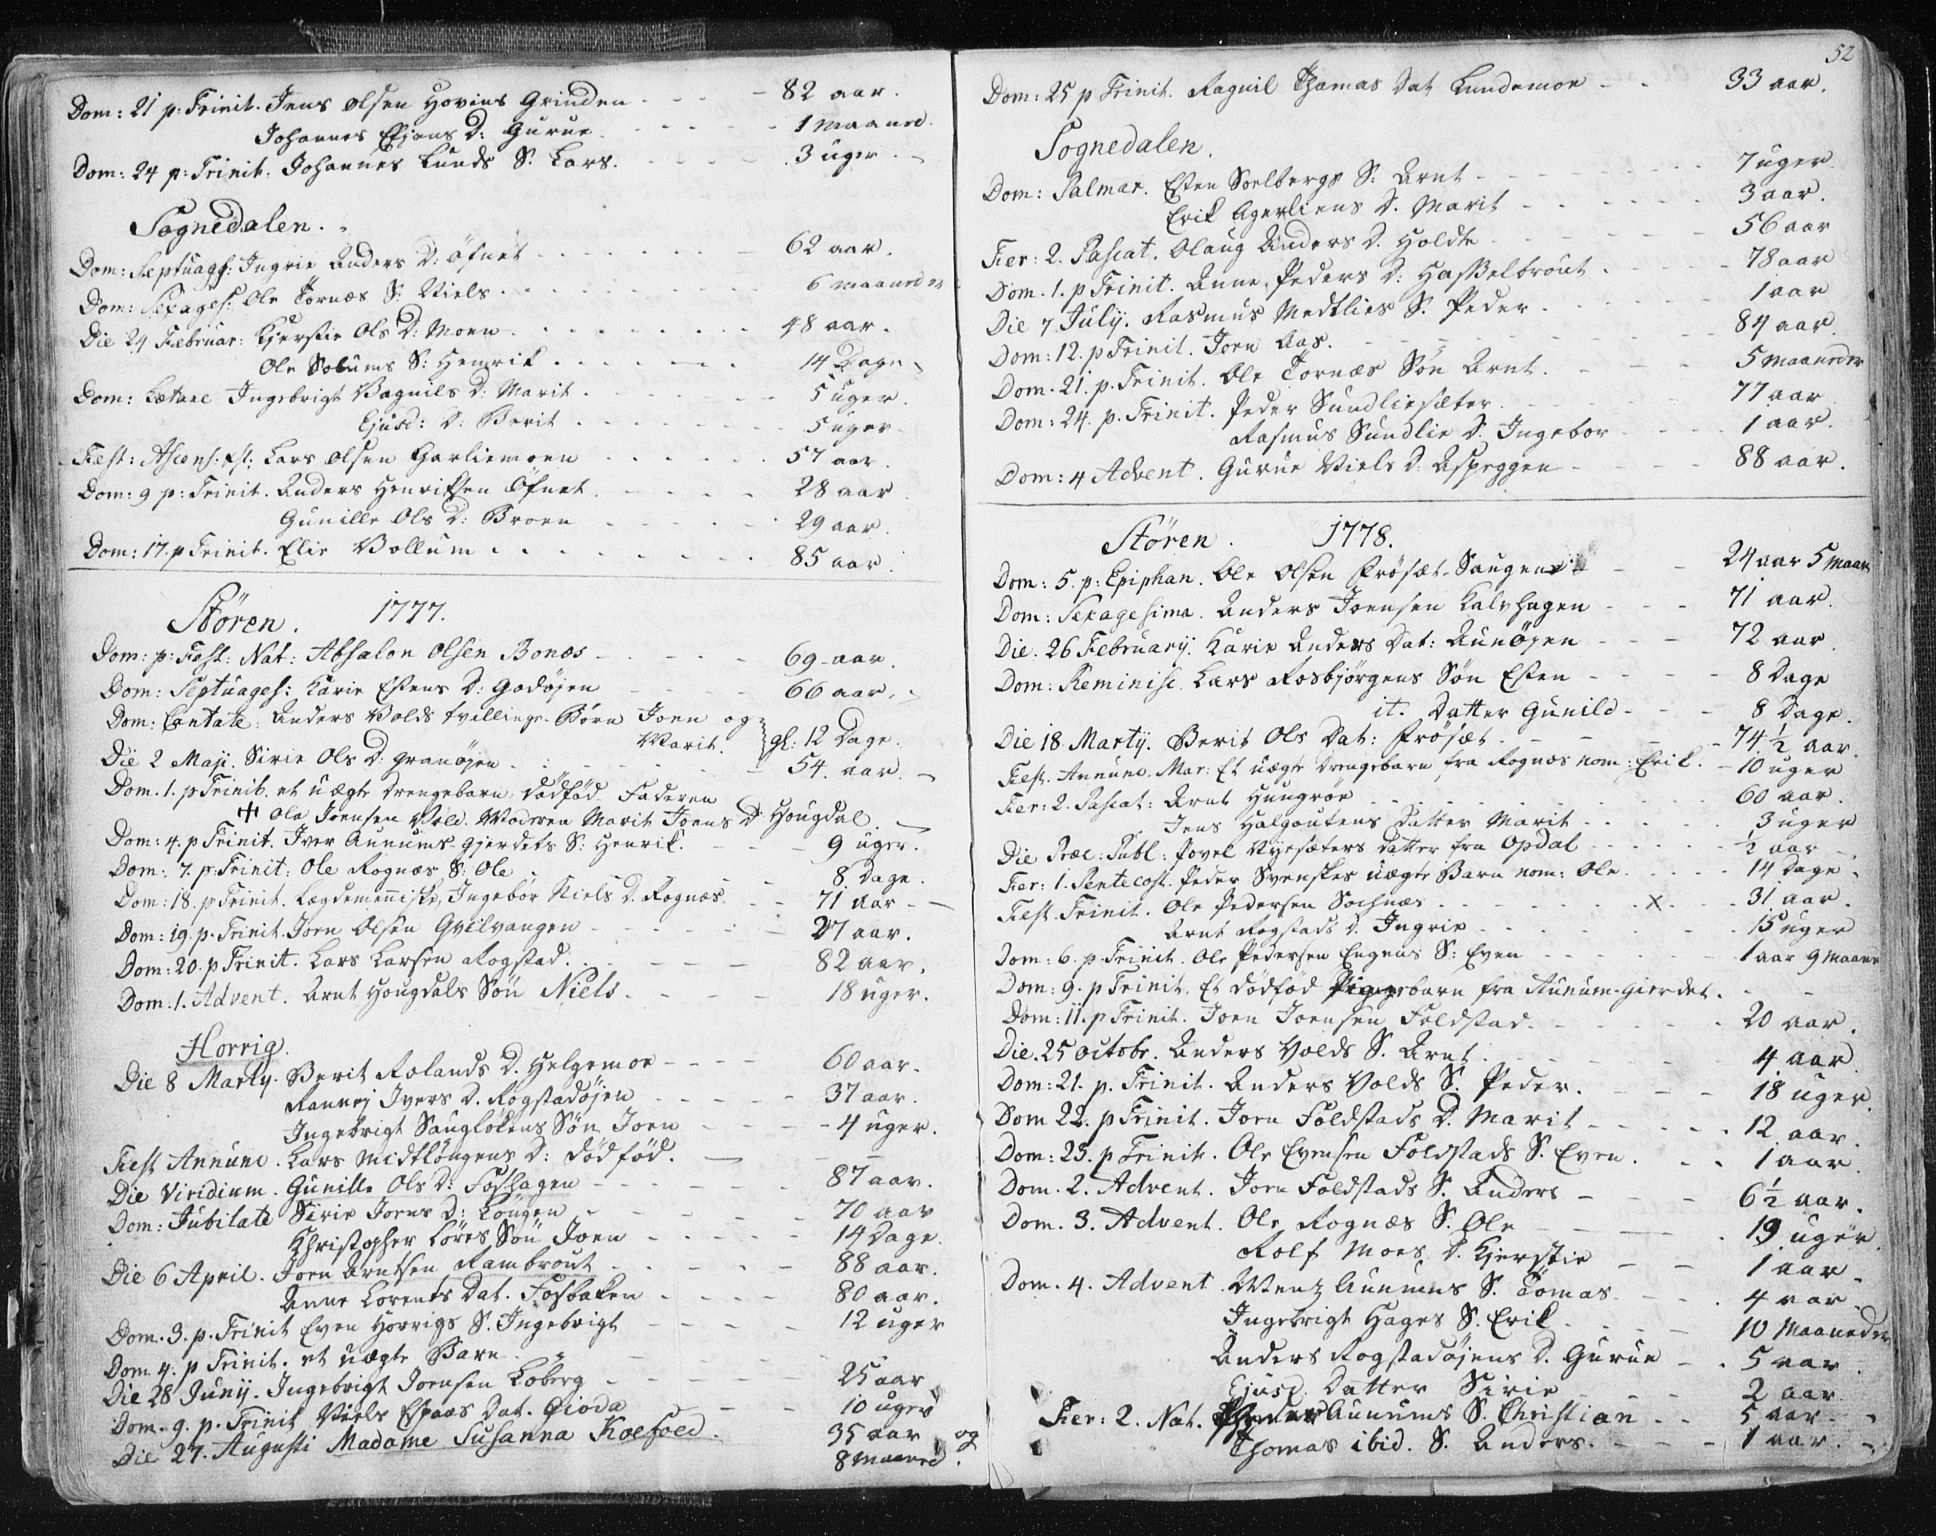 Dom: 21 p: Trinit. Jens Olsen Hovins Grinden - - - - 82 aar.
Johannes Ejons D: Gurue - - - - 1 maaned.
Dom: 24 p: Trinit. Johannes Lunds S. Lars. - - - - 3 uger.
Sognedalen.
Dom: Septuages: Ingrie Anders D: Öfnet - - - - 62 aar.
Dom: Sexages: Ole Tornæs S: Niels - - - - 6 maaneder
Die 24 Februar: Kjerstie Ols D: Moen - - - - 48 aar.
Ole Solums S: Henrik - - - - 14 Dage
Dom: Lætare Ingebrigt Bagnils D: Marit - - - - 5 uger.
Ejusd: D: Berit - - - - 5 uger.
Fest: Ascens: Lars Olsen Garliemoen - - - - 57 aar.
Dom: 9 p: Trinit. Anders Henriksen Öfnet - - - - 28 aar.
Gunille Ols D: Broen - - - - 29 aar.
Dom: 17. p Trinit. Elie Bollum - - - - 85 aar.
Stören. 1777.
Dom: p: Fest: Nat: Absalon Olsen Bonæs - - - - 69 aar.
Dom: Septuages: Karie Estens D: Godöjen - - - - 66 aar.
Dom: Cantate: Anders Volds tvillinge-Börn Joen og
Marit. gl: 12 Dage.
Die 2 Maji. Sirie Ols D: Granöjen - - - - 54. aar.
Dom. 1. p Trinit. et uægte drengebarn, dödföd Faderen
+ Ole Joensen Vold. Moderen Marit Joens D. Hougdal
Dom: 4. p Trinit. Iver Aunums Gjerdets S: Henrik. - - 9 uger.
Dom. 7. p: Trinit: Ole Rognæs S: Ole - - - - 8. Dage.
Dom: 18. p Trinit. Lægdemenniske, Ingebor Niels D. Rognæs. - - 71 aar
Dom: 19. p. Trinit. Joen Olsen Gvilvangen - - - - 27 aar.
Dom: 20. p Trinit. Lars Larsen Rogstad. - - - - 82 aar.
Dom: 1. Advent. Arnt Hougdals Sön Niels. - - - - 18 uger.
Horrig.
Die 8 Marty. Berit Rolands D. Helgemoe - - - 60 aar.
Rannej Ivers D. Rogstadöjen - - - - 37 aar.
Ingebrigt Saugløkens Sön Joen - - - - 4 uger.
Fest Annunc. Lars Midtlöngens D: dödföd.
Die Viridium. Gunille Ols D: Foshagen - - - 87 aar.
Dom: Jubilate Sirie Joens D: Löngen - - - 70 aar
Christopher Löres Sön Joen - - - 14 Dage.
Die 6 April. Joen Arntsen Rambrout - - - 88 aar.
Anne Lorents Dat. Fosbaken - - - 80 aar.
Dom. 3. p. Trinit Even Horrigs S. Ingebrigt - - - 12 uger
Dom 4. p Trinit. et uægte Barn.
Die 28 Juny. Ingebrigt Joensen Loberg - - - 25 aar
Dom. 9. p. Trinit Niels Espaas Dat. Gioda - - - 10 uger
Die 27. Augusti Madame Susanna Koefoed. 35 aar og
8 Maaned.
52
Dom: 25 p Trinit. Raguil Thomas Dat Lundemoe - - 33 aar.
Sognedalen.
Dom: Palmar. Esten Soelbergs S: Arnt - - - - 7 uger
Erik Agerliens D. Marit - - - - 3 aar.
Fer: 2. Pascat. Olaug Anders D. Holdte - - - - 56 aar
Dom. 1. p Trinit. Anne Peders D. Hasselbrout. - - - 78 aar
Die 7 July. Rasmus Medtlies S. Peder - - - - 1 aar
Dom: 12. p Trinit. Joen Aas. - - - - 84 aar.
Dom. 21. p. Trinit. Ole Tornæs Sön Arnt. - - - 5 maaneder
Dom: 24. p. Trinit. Peder Sundliesæter. - - - 77 aar
Rasmus Sundlie D. Ingebor - - - 1 aar.
Dom: 4 Advent. Gurue Niels D: Aspeggen - - - 88 aar.
Stören. 1778.
Dom: 5. p: Epiphan. Ole Olsen Frösæt-Saugen - - - 24 aar 5 maan
Dom: Sexagesima. Anders Joensen Kalvhagen - - - 71 aar.
Die. 26 February. Karie Anders Dat: Aunöjen - - - 72 aar.
Dom: Reminisc. Lars Rosbjörgens Sön Esten - - - - 8 Dage
it. Datter Gunild - - - 8 Dage.
Die 18. Marty. Berit Ols Dat: Frösæt - - - - 74 1/2 aar
Fest. Annunc. Mar: Et uægte drengebarn fra Rognæs nom: Erik. - 10 uger
Fer: 2. Pascat: Arnt Hungröe - - - - 60 aar.
Jens Halgoutens Datter Marit - - - - 3 uger
Die Præc: Publ: Povel Nyesæters Datter fra Opdal - - - - 1/2 aar
Fer: 1. Pentecost. Peder Svenskes uægte Barn nom: Ole. - - - 14 Dage
Fest. Trinit. Ole Pedersen Soknæs - - - - x - - 31 aar.
Arnt Rogstads D. Ingrie - - - - 15 uger
Dom: 6. p Trinit. Ole Pedersen Engens S: Even - - - - 1 aar 9 maaned
Dom: 9. p Trinit. Et dödföd Pigebarn fra Aunum-Gierdet.
Dom: 11. p Trinit. Joen Joensen Foldstad. - - - - 20 aar.
Die. 25 Octobr. Anders Volds S. Arnt. - - - - 4 aar
Dom: 21. p. Trinit. Anders Volds S. Peder. - - - 18 uger.
Dom 22. p Trinit. Joen Foldstads D. Marit - - - - 12 aar.
Dom: 23. p Trinit. Ole Evensen Foldstads S. Even. - - - 1 aar.
Dom. 2. Advent. Joen Foldstads S. Anders - - - 6 1/2 aar.
Dom. 3. Advent. Ole Rognæs S. Ole - - - 19 uger.
Rolf Moes D. Kjerstie - - - 1 aar
Dom. 4. Advent. Wenz Aunums S. Tomas. - - - 4 aar.
Ingebrigt Hages S. Erik. - - - 10 Maaneder
Anders Rogstadöjens D. Gurue - - 5 aar
Ejusd. Datter Sirie - - - 2 aar.
Fer: 2. Nat. Aunums S. Christian - - 5 aar.
Thomas ibid. S. Anders. - - - 1 aar.